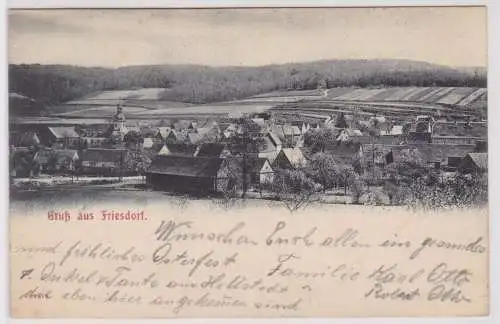 Gruß aus Friesdorf.
Wünschen Euch allen ein gesundes
und fröhliches Osterfest Familie Karl Otto
Onkel u Tante aus Hettstedt Robert Otto
die eben hier angekommen sind